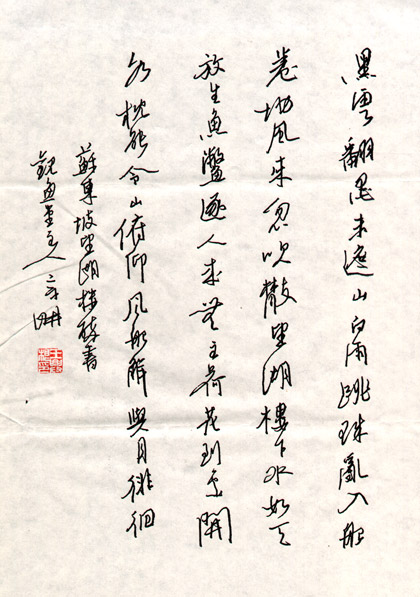 黑雲翻墨未遮山白雨跳珠亂入船
卷地風来忽吹散望湖樓下水如天
放生魚鱉逐人来無主荷花到處開
水枕能令山俯仰風船解與月徘徊
蘇東坡望湖樓醉書
觀魚主人